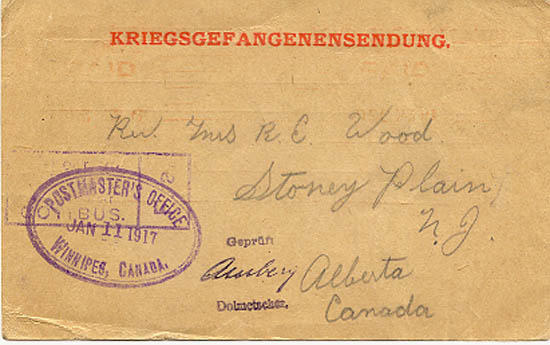 KRIEGSGEFANGENENSENDUNG.
Rev. Mrs R. E. Wood.
Stoney Plain
N. J.
Alberta
Canada
POSTMASTER'S OFFICE
BUS.
JAN 11 1917
WINNIPEG, CANADA.
Geprüft
Dolmetscher.